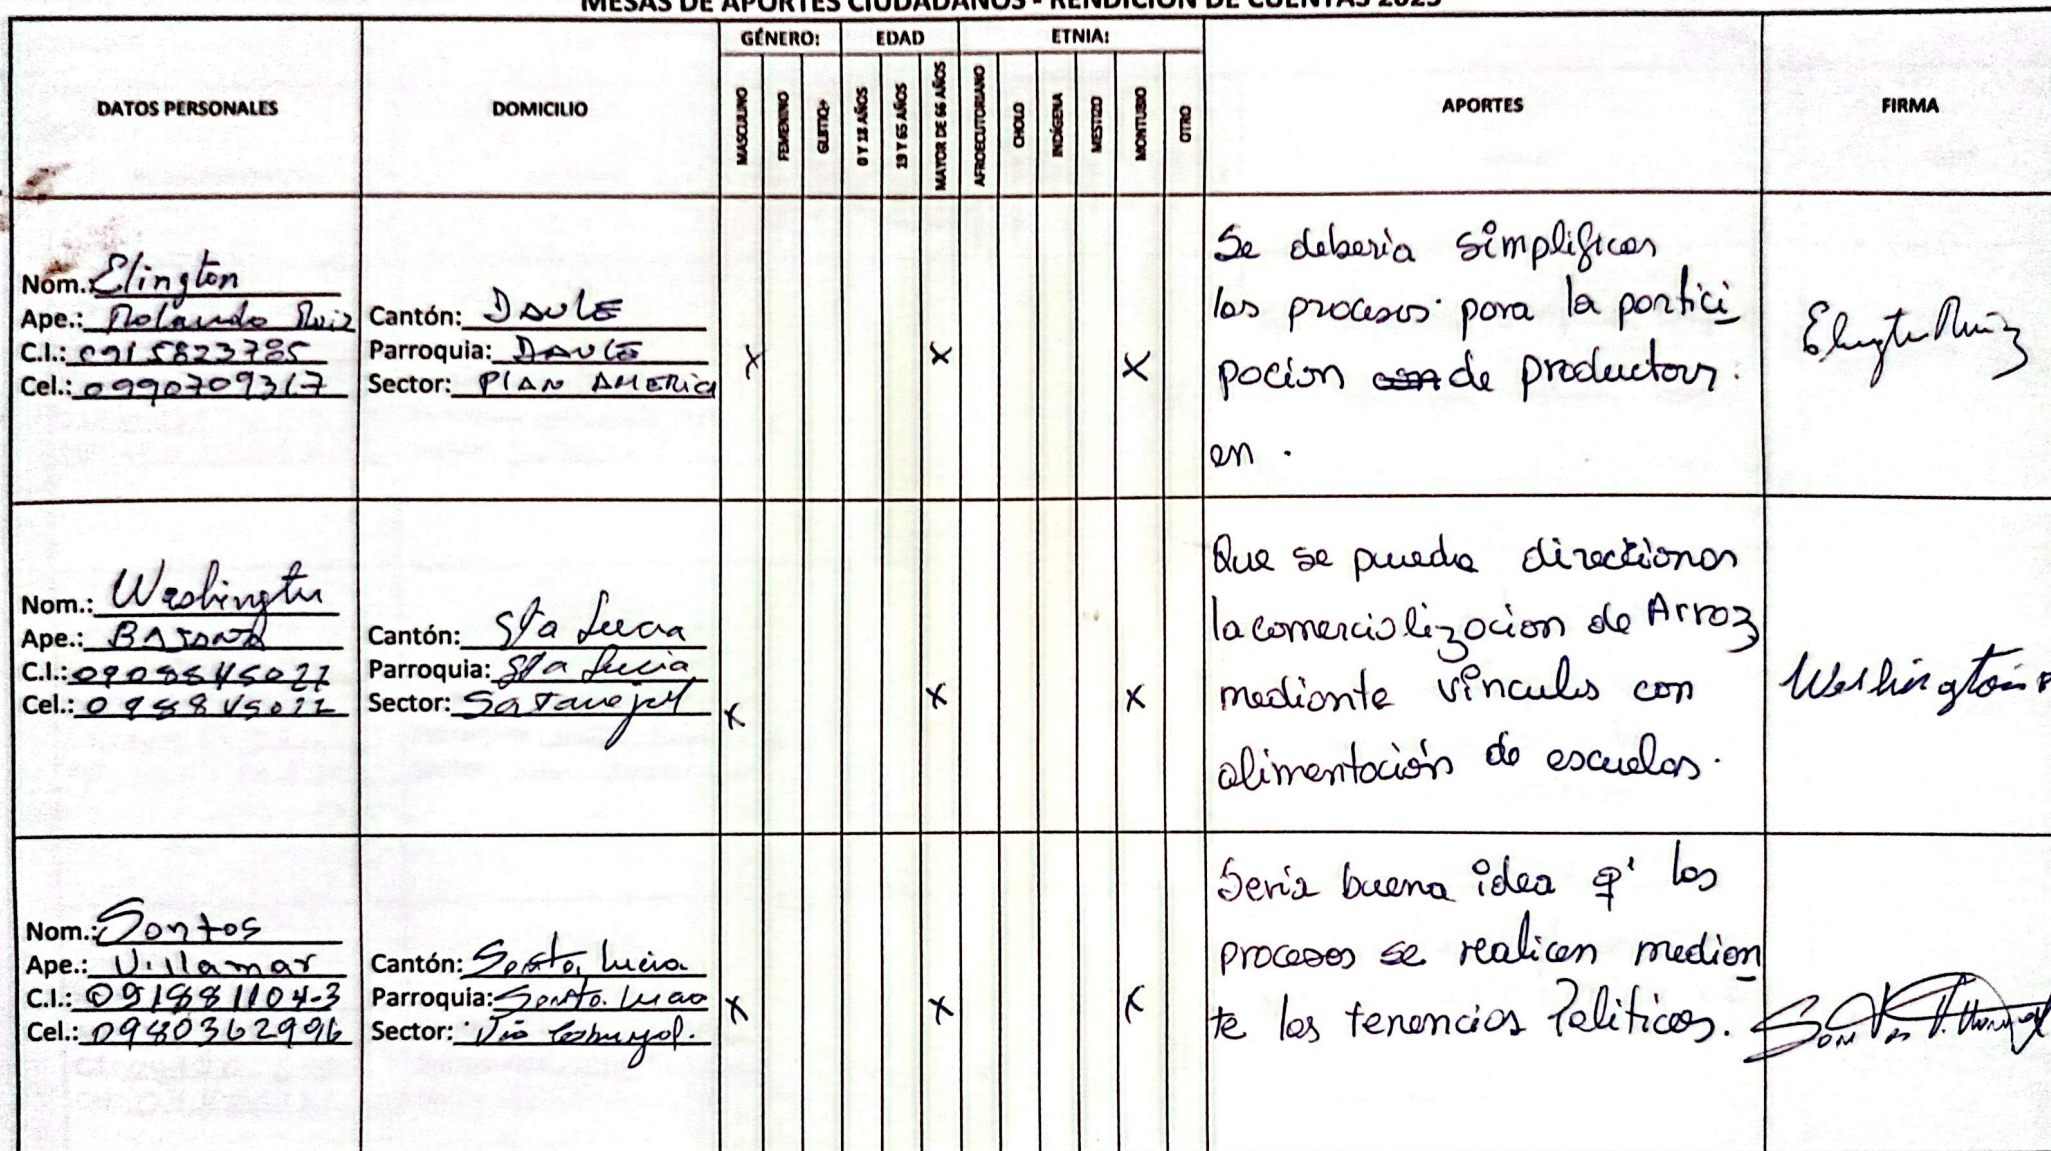 MESAS DE APORTES CIUDADANOS - RENDICIÓN DE CUENTAS 2023
DATOS PERSONALES
DOMICILIO
GÉNERO:
MASCULINO
FEMENINO
GLBTIQ+
EDAD
0 Y 18 AÑOS
19 Y 65 AÑOS
MAYOR DE 66 AÑOS
ETNIA:
AFROECUTORIANO
CHOLO
INDÍGENA
MESTIZO
MONTUBIO
OTRO
APORTES
FIRMA
Nom.: Elington
Ape.: Rolando Ruiz
C.I.: 0915823785
Cel.: 0990709367
Cantón: DAULE
Parroquia: DAULE
Sector: PLAN AMERICA
X
X
X
Se deberia simplificar
los procesos para la partici
pacion de productores.
en.
Elington Ruiz
Nom.: Washington
Ape.: BAJAÑA
C.I.:
Cel.:
Cantón: Sta Lucia
Parroquia: Sta Lucia
Sector:
X
X
X
Que se pueda directionar
la comercialización de Arroz
mediante vinculos con
alimentación de escuelas.
Washington
Nom.: Santos
Ape.: Villamar
C.I.: 091881104-3
Cel.: 0980362996
Cantón: Santa Lucia
Parroquia: Santa Lucia
Sector: Via
X
X
X
Seria buena idea q' los
procesos se realicen median
te las tenencias Politicas.
Santos